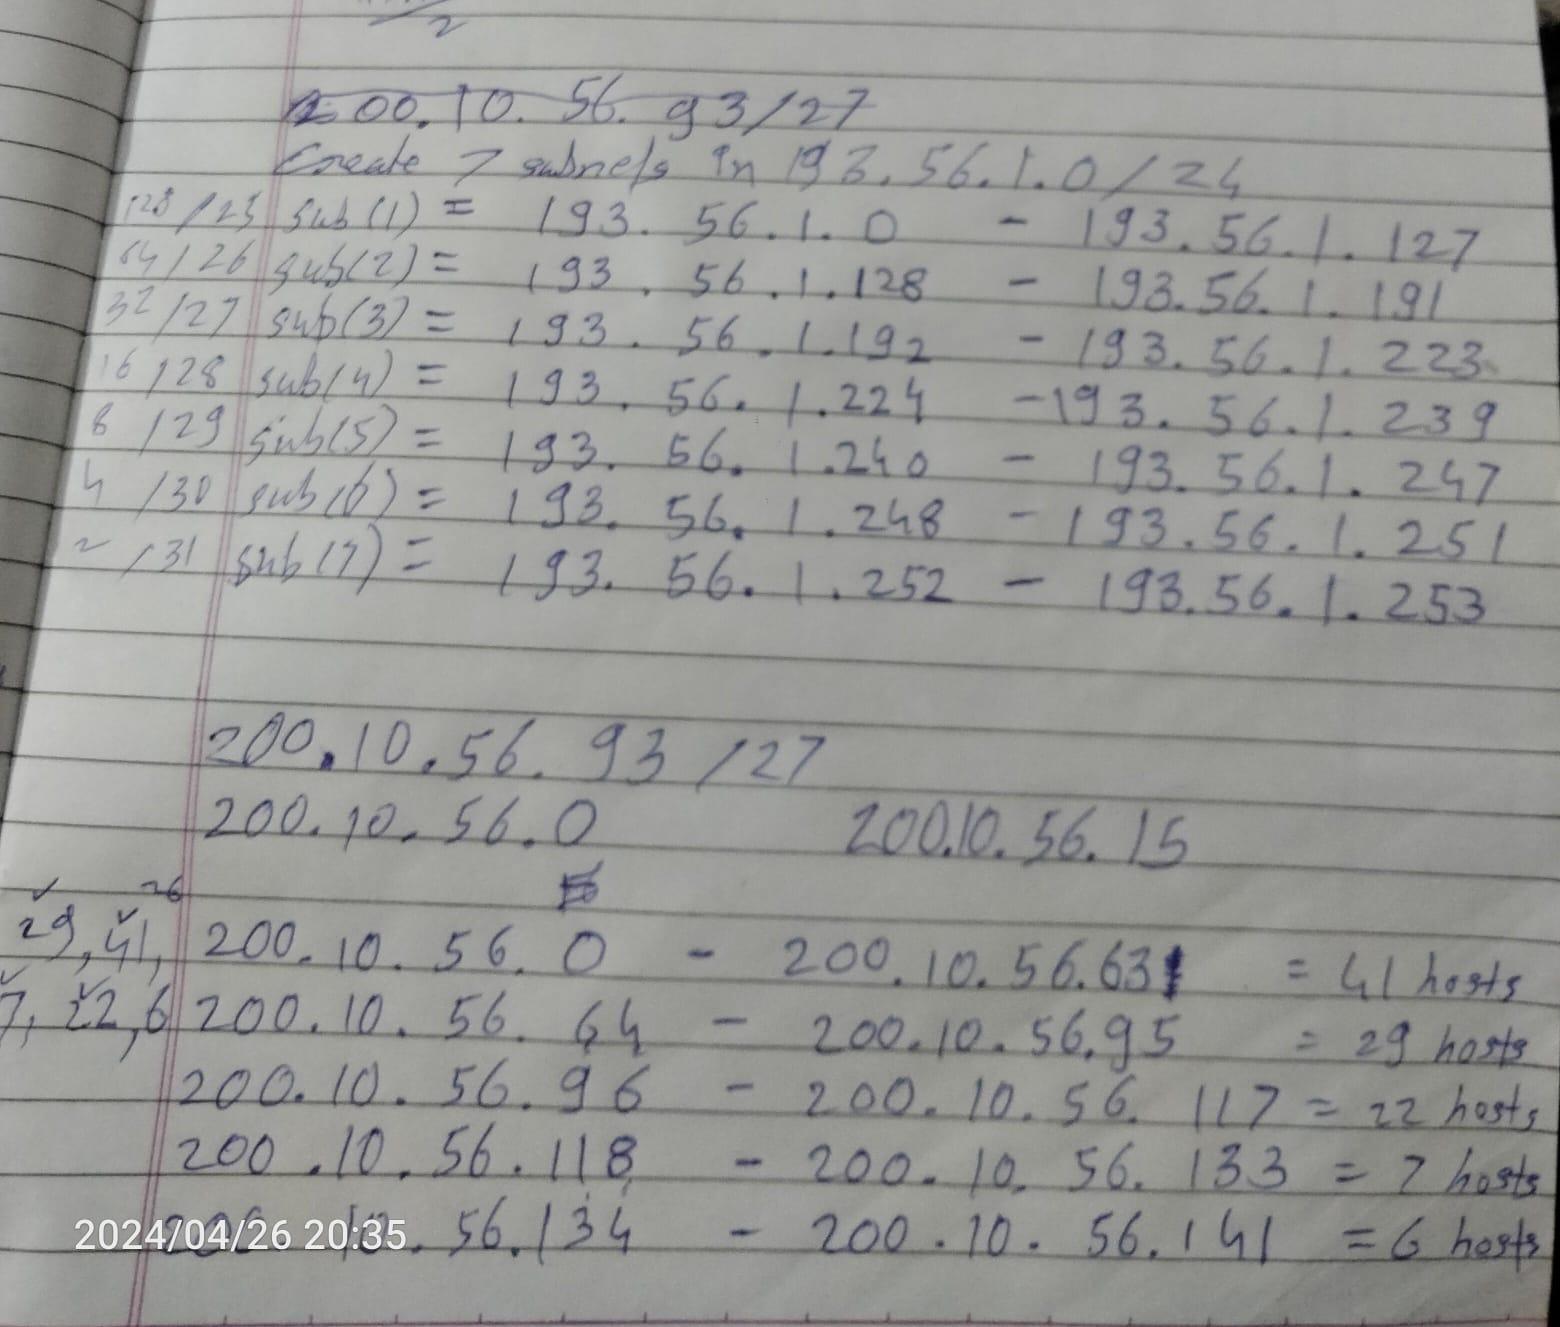 2
200.10.56.93/27
Create 7 subnets in 193.56.1.0/24
128/25 sub(1) = 193.56.1.0 - 193.56.1.127
64/26 sub(2) = 193.56.1.128 - 193.56.1.191
32/27 sub(3) = 193.56.1.192 - 193.56.1.223
16/28 sub(4) = 193.56.1.224 - 193.56.1.239
8/29 sub(5) = 193.56.1.240 - 193.56.1.247
4/30 sub(6) = 193.56.1.248 - 193.56.1.251
2/31 sub(7) = 193.56.1.252 - 193.56.1.253
200.10.56.93/27
200.10.56.0 200.10.56.15
26
29, 41, 200.10.56.0 - 200.10.56.63 = 41 hosts
7, 22, 6 200.10.56.64 - 200.10.56.95 = 29 hosts
200.10.56.96 - 200.10.56.117 = 22 hosts
200.10.56.118 - 200.10.56.133 = 7 hosts
200.10.56.134 - 200.10.56.141 = 6 hosts
2024/04/26 20:35